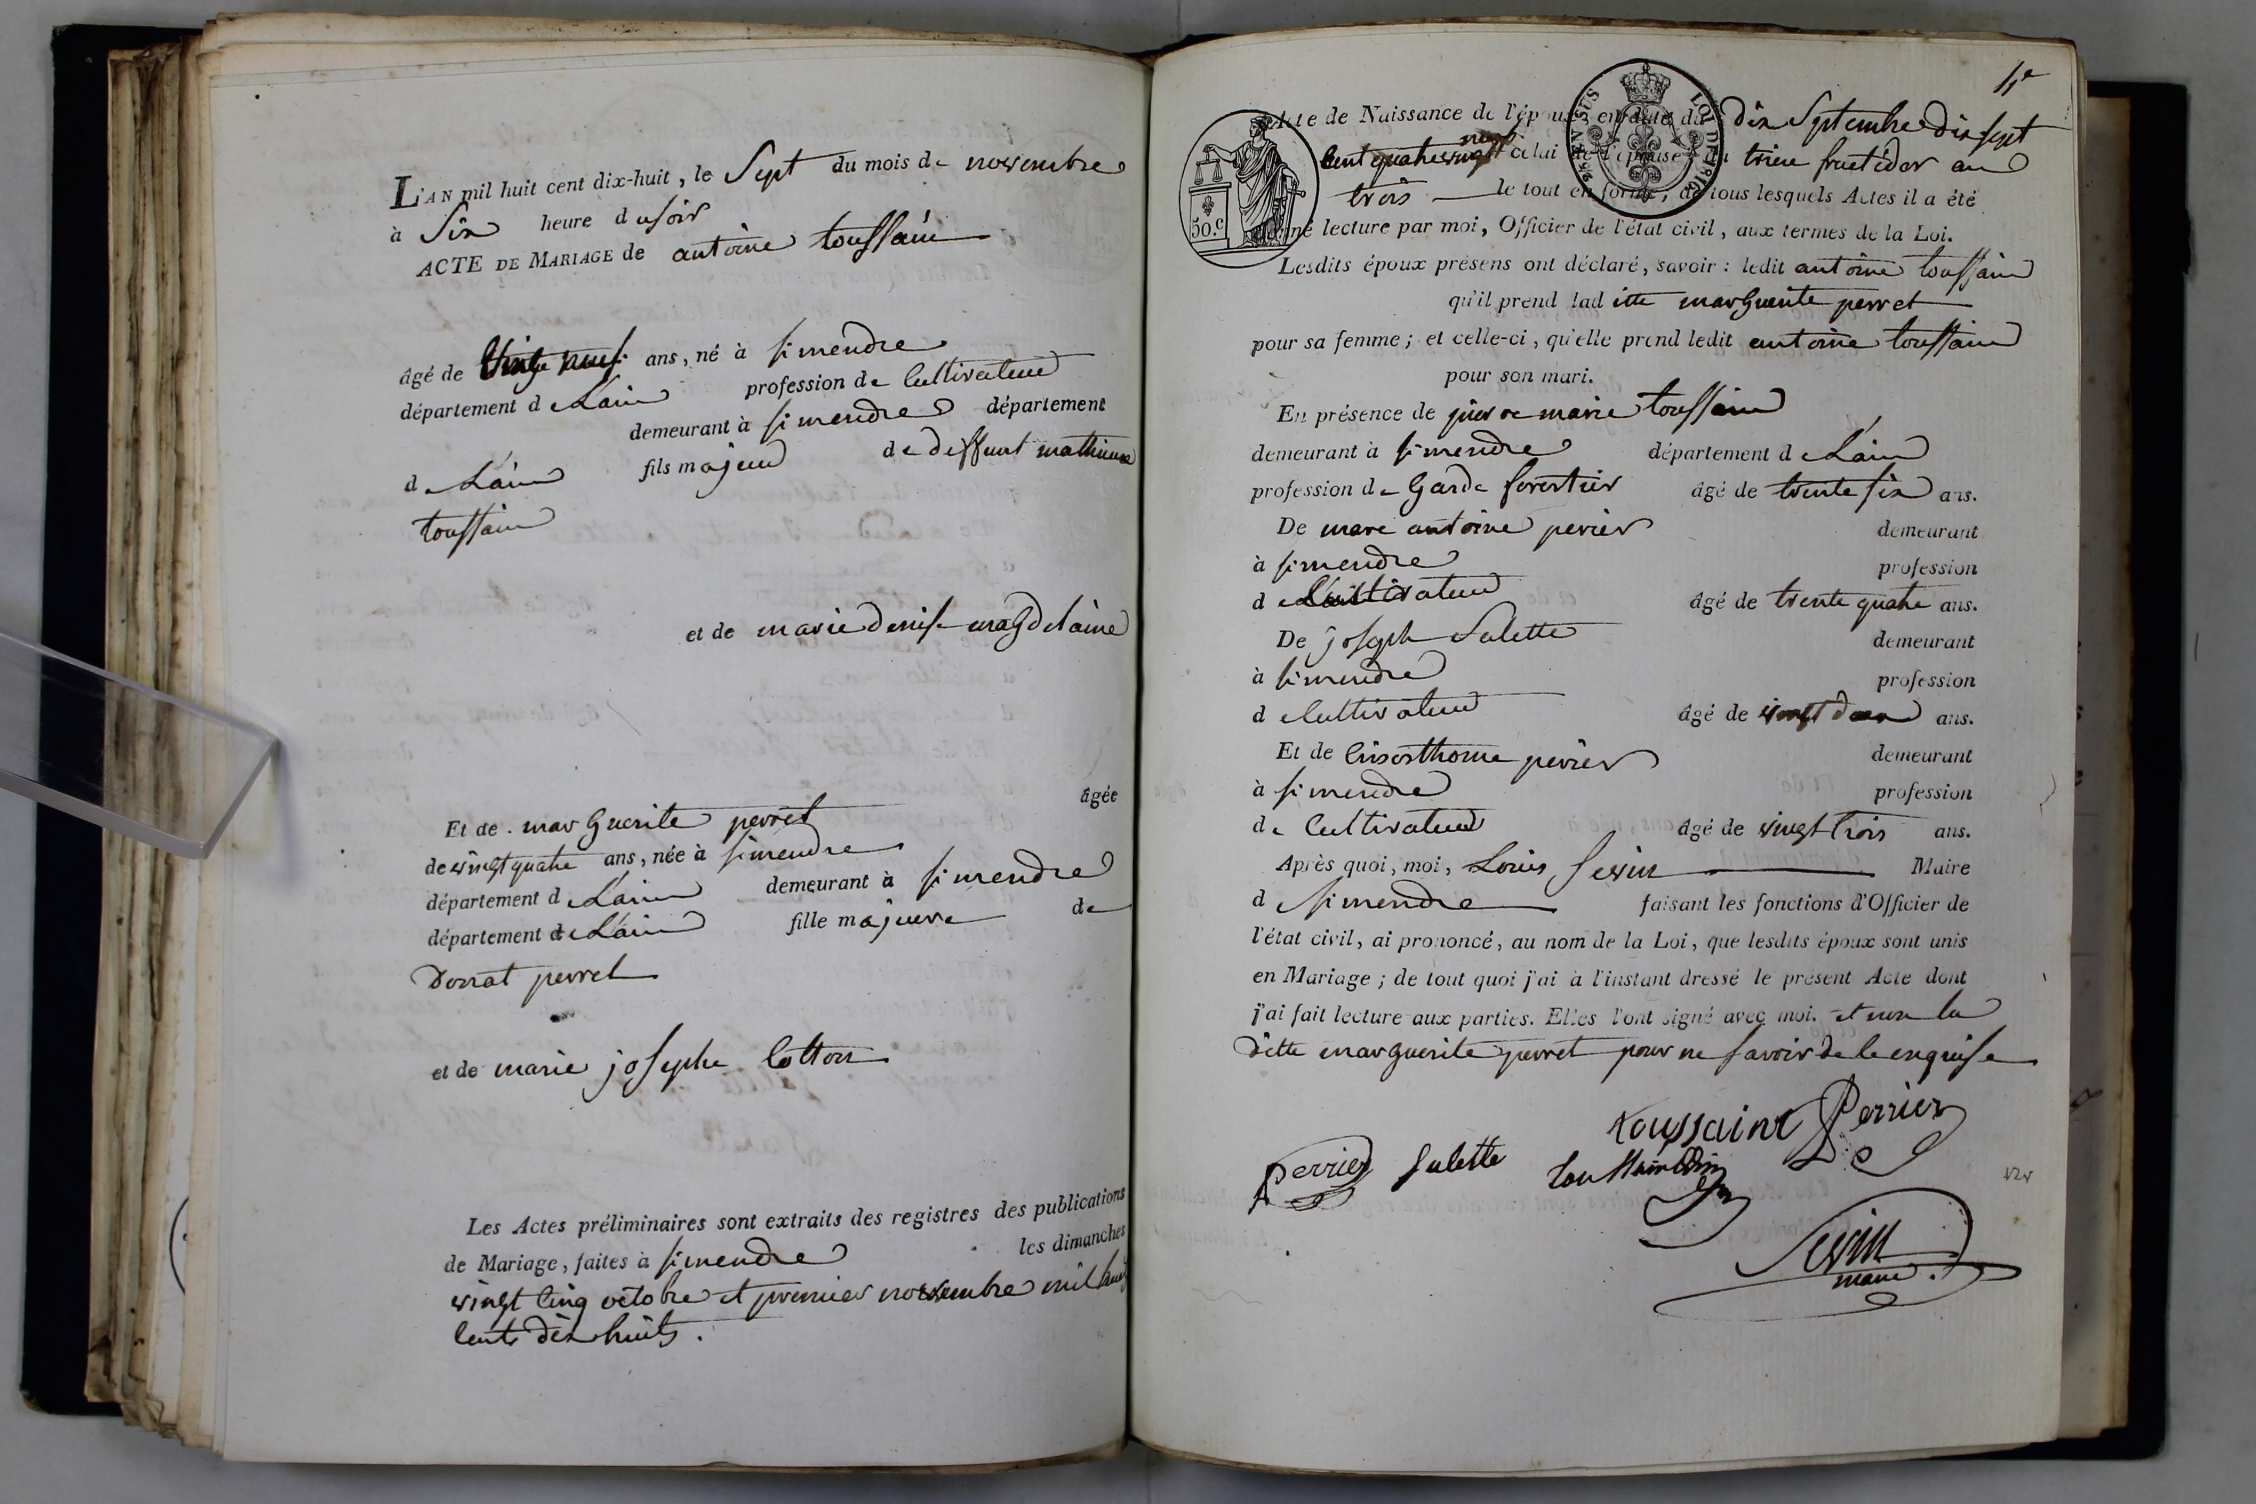 L'AN mil huit cent dix-huit, le Sept du mois de novembre
à Six heure du soir
ACTE DE MARIAGE de antoine toussain
âgé de vingt neuf ans, né à simendre
département de Lain profession de Cultivateur
demeurant à simendre département
de Lain fils majeur de deffunt mathieu
toussain
et de marie denise magdelaine
Et de marguerite perret âgée
de vingt quatre ans, née à simendre
département de Lain demeurant à simendre
département de Lain fille majeure de
Donat perret
et de marie josephe Cotton
Les Actes préliminaires sont extraits des registres des publications
de Mariage, faites à simendre les dimanches
vingt cinq octobre et premier novembre mil huit
cents dix huits.
4e
Acte de Naissance de l'époux, en date du dix Septembre dix sept
cent quatre vingt neuf celui de l'épouse du treize fructidor an
trois le tout en forme, de tous lesquels Actes il a été
donné lecture par moi, Officier de l'état civil, aux termes de la Loi.
50.C
LOI DE
Lesdits époux présens ont déclaré, savoir : ledit antoine toussain
qu'il prend laditte marguerite perret
pour sa femme ; et celle-ci, qu'elle prend ledit antoine toussain
pour son mari.
En présence de pierre marie toussain
demeurant à simendre département de Lain
profession de Garde forestier âgé de trente six ans.
De marc antoine perier demeurant
à simendre profession
de Cultivateur âgé de trente quatre ans.
De joseph Salette demeurant
à simendre profession
de Cultivateur âgé de vingt deux ans.
Et de Crisosthome perier demeurant
à simendre profession
de Cultivateur âgé de vingt trois ans.
Après quoi, moi, Louis Sevin Maire
de Simendre faisant les fonctions d'Officier de
l'état civil, ai prononcé, au nom de la Loi, que lesdits époux sont unis
en Mariage ; de tout quoi j'ai à l'instant dressé le présent Acte dont
j'ai fait lecture aux parties. Elles l'ont signé avec moi. et non la
ditte marguerite perret pour ne savoir de le enquise
toussaint Perrier
Perrier Salette toussain
Sevin
maire